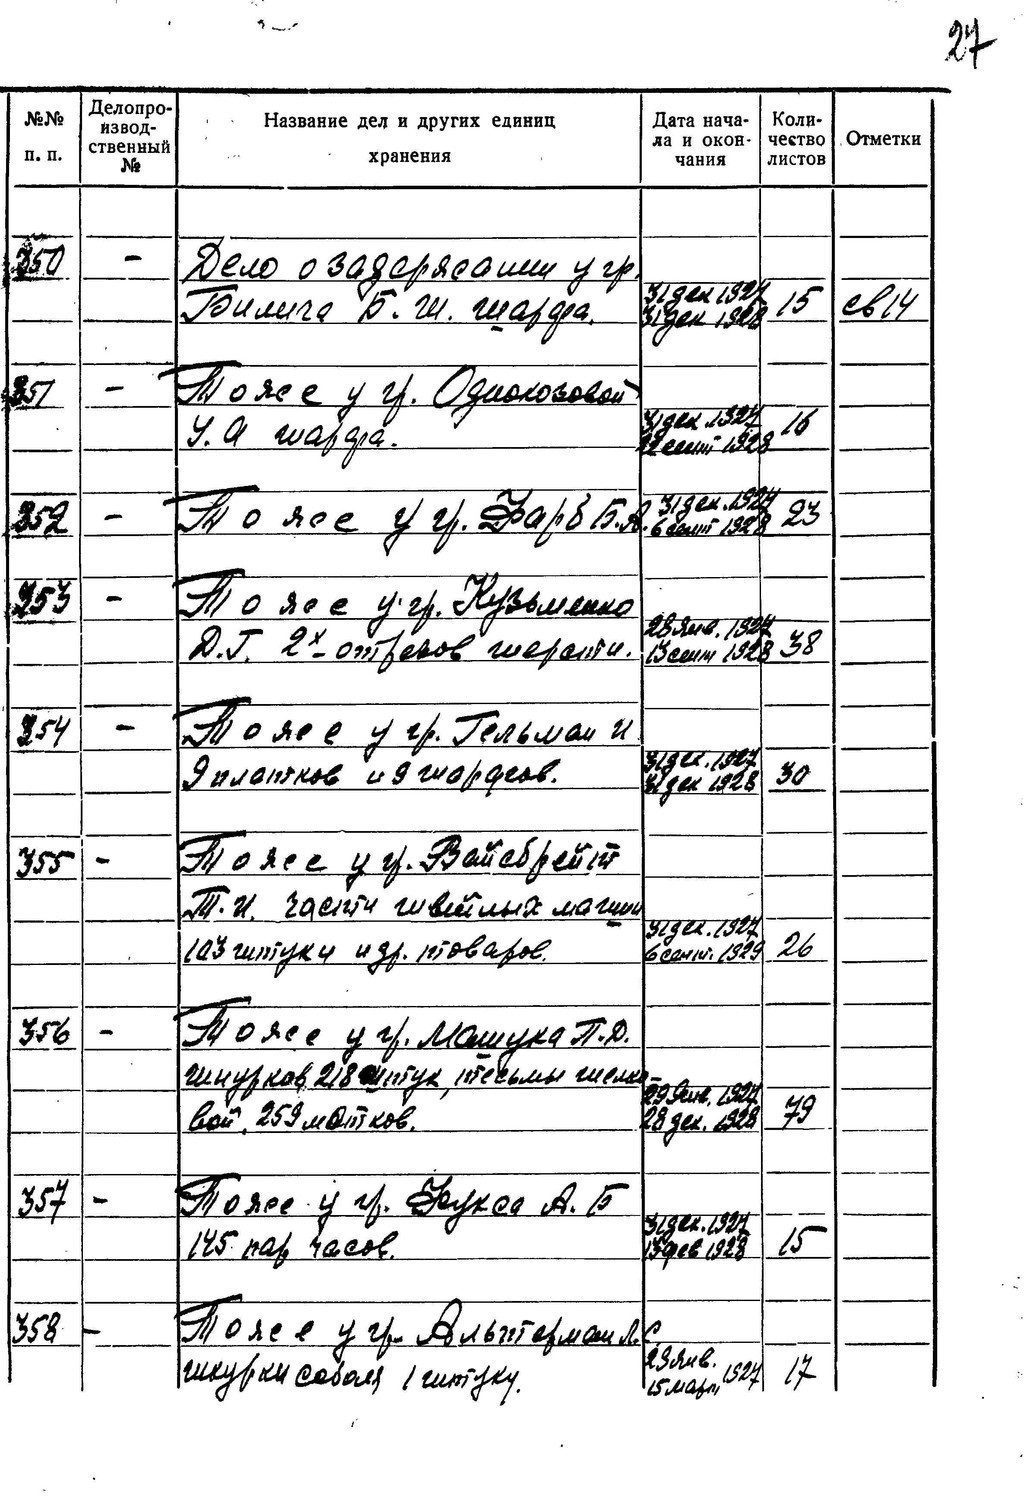 27
№№ п. п. Делопроизводственный № Название дел и других единиц хранения Дата начала и окончания Количество листов Отметки
350 - Дело о задержании у гр.
Билича Б. Ш. шарфа. 31 дек 1927 31 дек 1928 15 св 14
351 - То же у гр. Однокозовой
У. А шарфа. 31 дек. 1927 22 сент 1928 16
352 - То же у гр. Фарб Б.Я. 31 дек. 1927 6 сент 1928 23
353 - То же у гр. Кузьменко
Д.Г. 2х отрезов шерсти. 28 янв. 1927 13 сент 1928 38
354 - То же у гр. Гельман И
9 платков и 9 шарфов. 31 дек. 1927 31 дек 1928 30
355 - То же у гр. Вайсбрейт
Т.И. части швейных машин
103 штуки и др. товаров. 31 дек. 1927 6 сент. 1929 26
356 - То же у гр. Мащука П.Д.
шнурков 218 штук, тесьмы шелко-
вой, 259 мотков. 29 янв. 1927 28 дек. 1928 79
357 - То же у гр. Фукса А. Б
145 пар часов. 31 дек. 1927 13 фев 1928 15
358 - То же у гр. Альтерман Л.С.
шкурки соболя 1 штуку. 29 янв. 15 март 1927 17